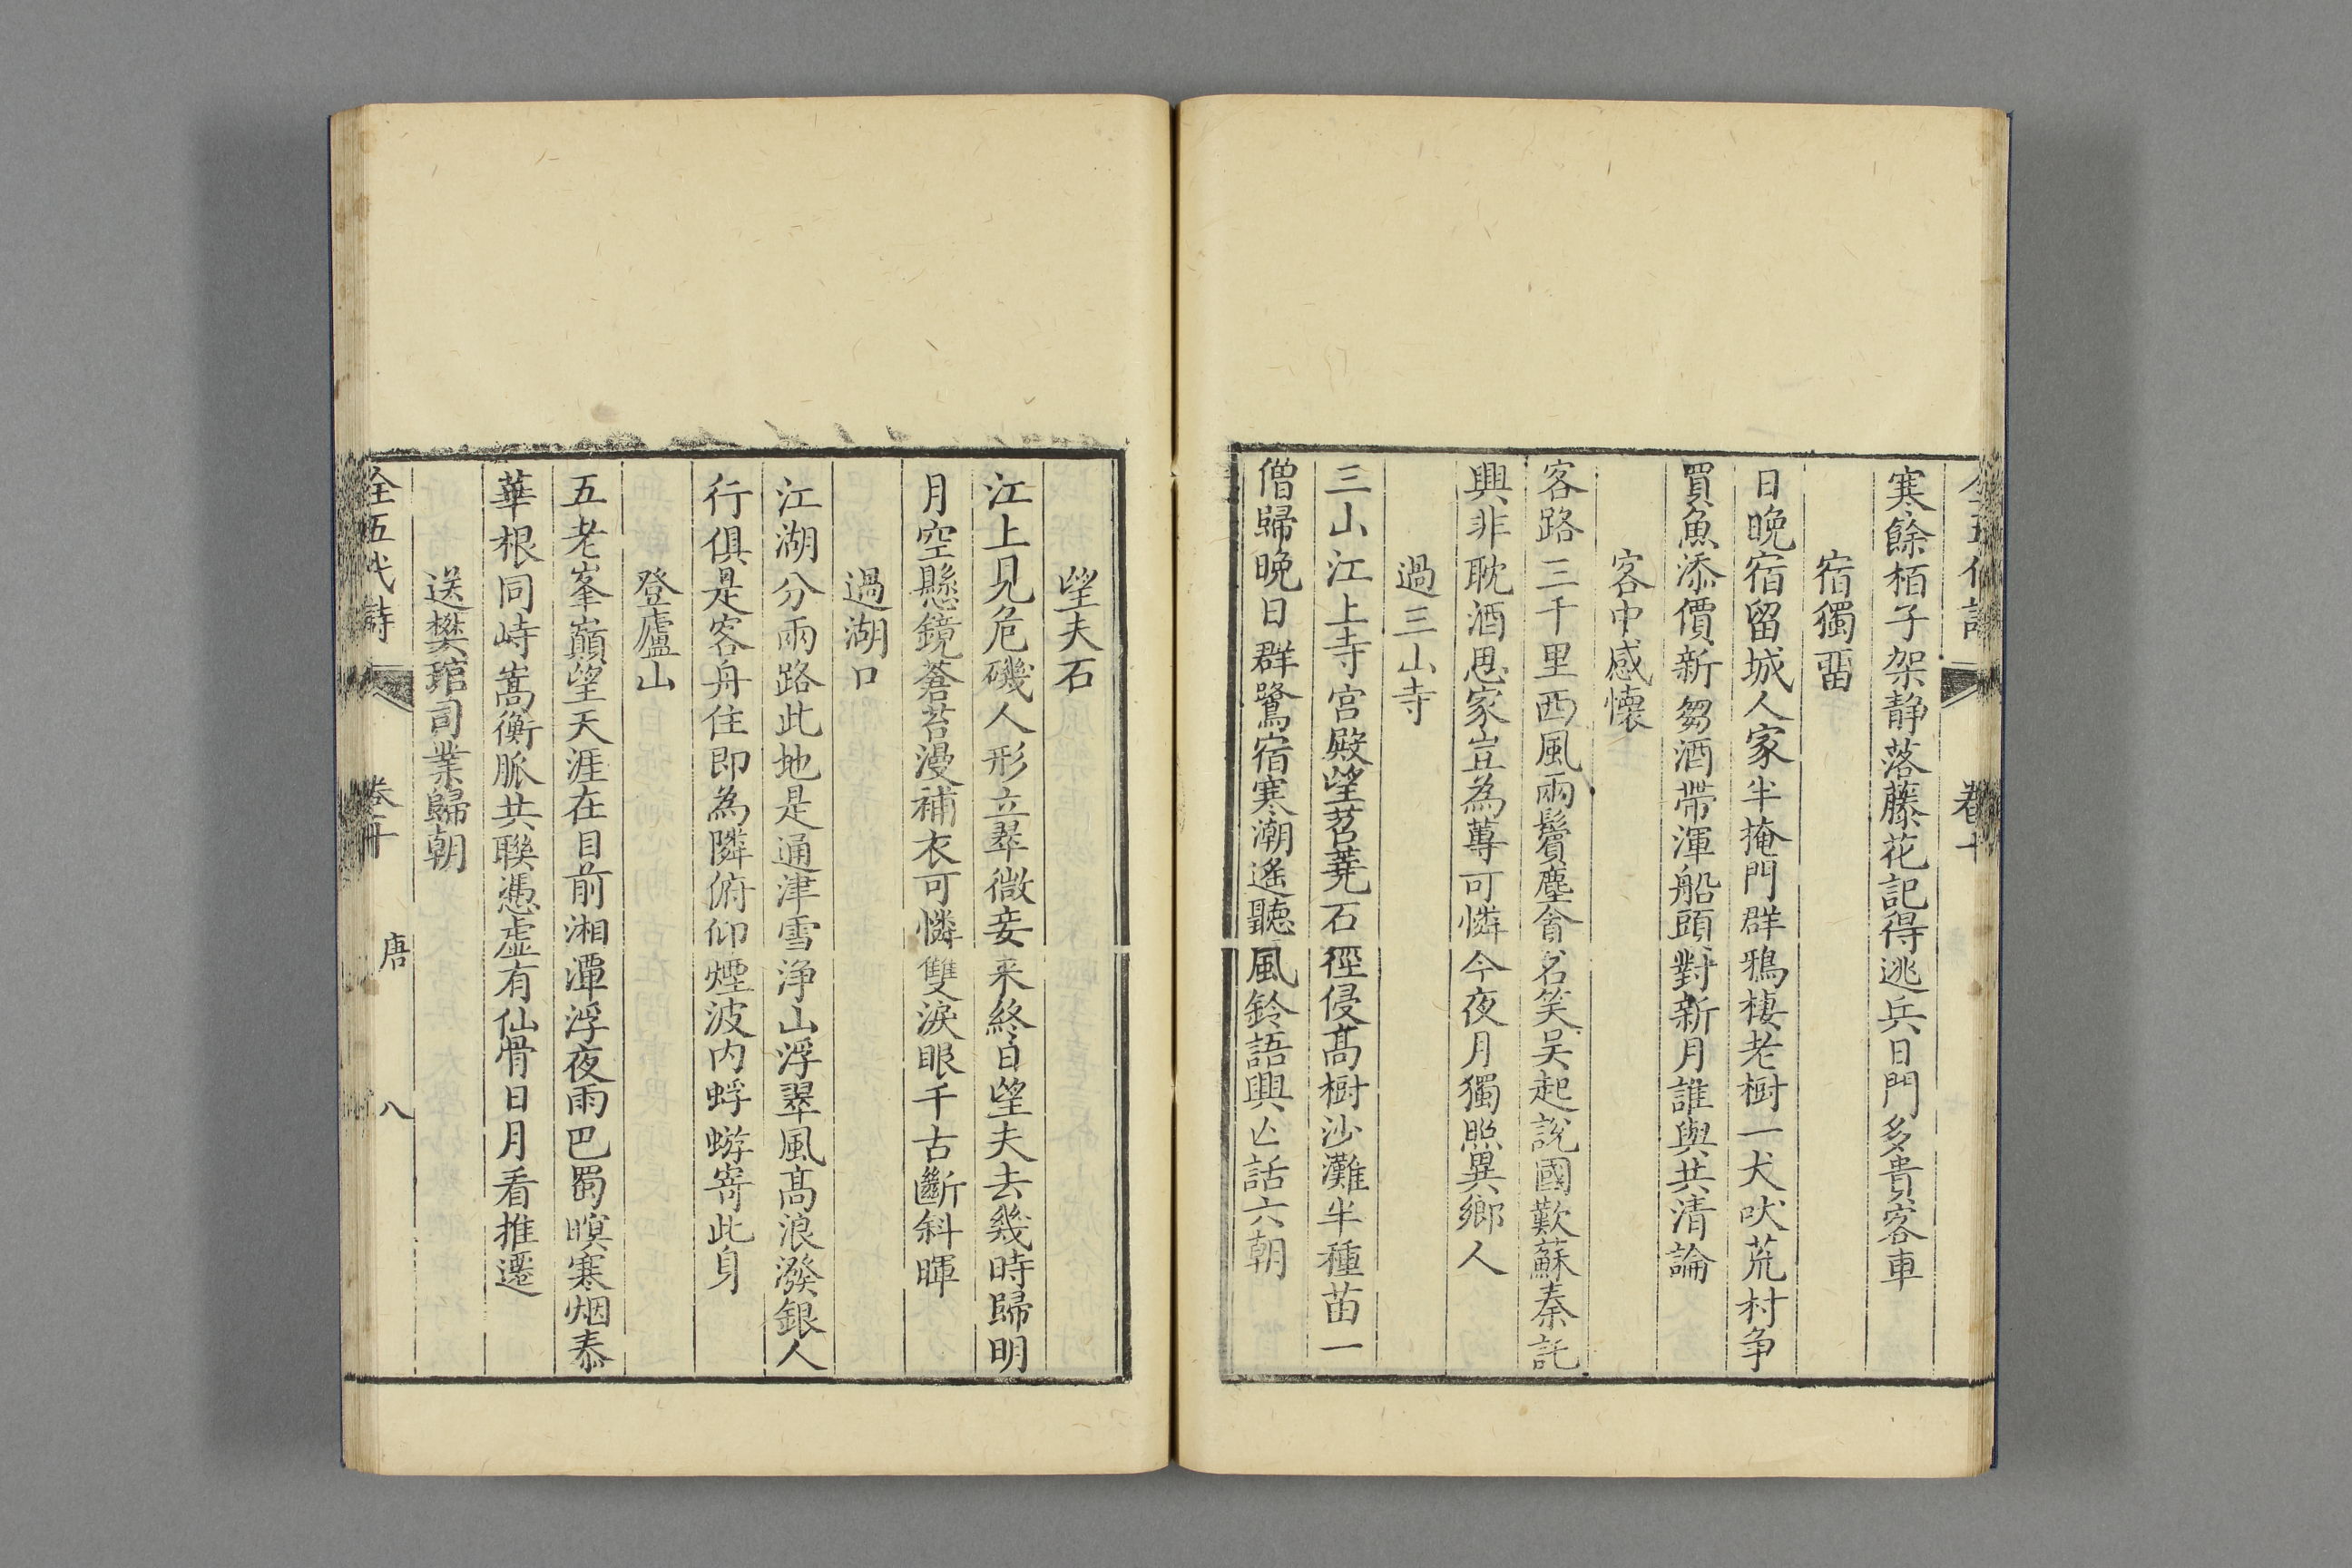 全五代詩 卷十
寒餘栢子架静落藤花記得逃兵日門多貴客車
宿獨㽞
日晚宿留城人家半掩門群鴉棲老樹一犬吠荒村争
買魚添價新芻酒帶渾船頭對新月誰與共清論
客中感懷
客路三千里西風兩鬢塵會名笑吴起說國歎蘇秦託
興非耽酒思家豈為蓴可憐今夜月獨照異鄉人
過三山寺
三山江上寺宫殿望苕蕘石徑侵髙樹沙灘半種苗一
僧歸晚日群鷺宿寒潮遙聽風鈴語興亾話六朝
望夫石
江上見危磯人形立翠微妾来終日望夫去幾時歸明
月空懸鏡蒼苔漫補衣可憐雙淚眼千古斷斜暉
過湖口
江湖分兩路此地是通津雪浄山浮翠風髙浪潑銀人
行俱是客舟住即為隣俯仰煙波内蜉蝣寄此身
登廬山
五老峯巔望天涯在目前湘潭浮夜雨巴蜀暝寒烟泰
華根同峙嵩衡脈共聯憑虛有仙骨日月看推遷
送樊琯司業歸朝
全五代詩 卷十 唐 八